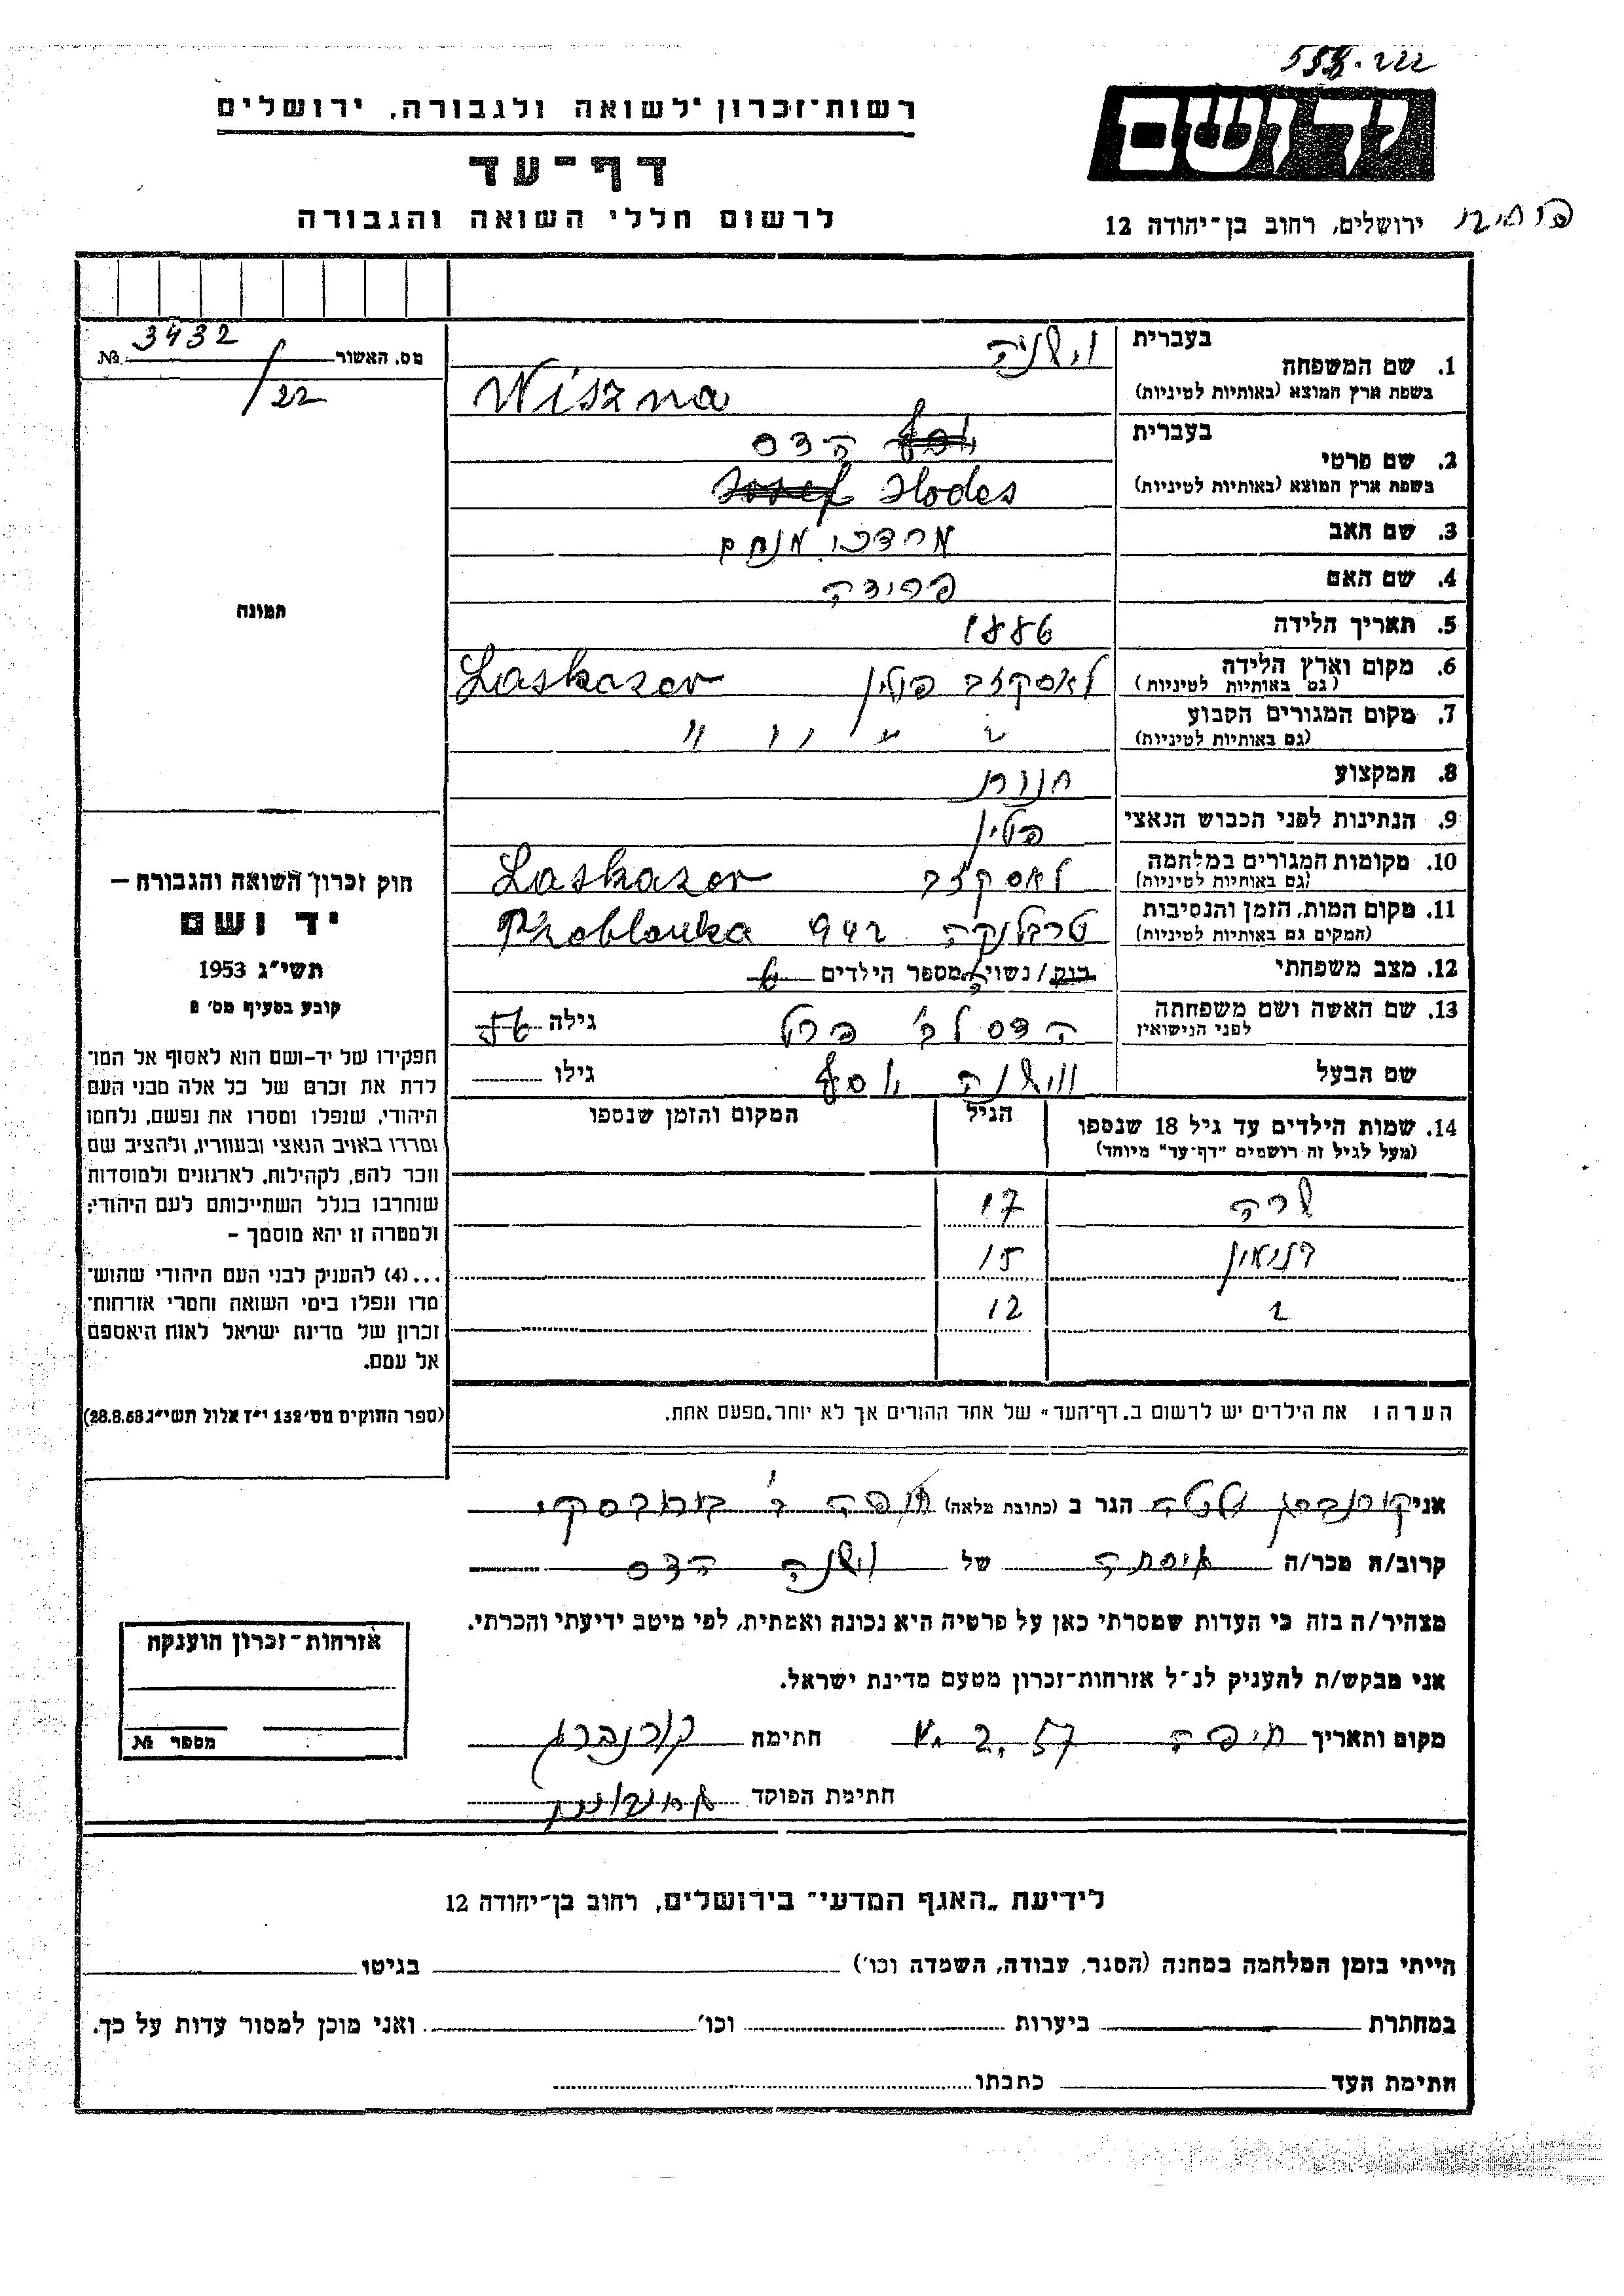 רשות-זכרון לשואה ולגבורה, ירושלים
דף-עד
לרשום חללי השואה והגבורה
יד ושם
ירושלים, רחוב בן-יהודה 12
מס. האשור 3432 №
/22
בעברית
1. שם המשפחה
וישניה
בשפת ארץ המוצא (באותיות לטיניות)
Wiszna
בעברית
2. שם פרטי
יוסף הדס
בשפת ארץ המוצא (באותיות לטיניות)
Josef Hodes
3. שם האב מרדכי מנחם
4. שם האם פרידה
5. תאריך הלידה 1886
6. מקום וארץ הלידה לאסקזב פולין Laskazer
(גם באותיות לטיניות)
7. מקום המגורים הקבוע " "
(גם באותיות לטיניות)
8. המקצוע חנונית
9. הנתינות לפני הכבוש הנאצי פולין
10. מקומות המגורים במלחמה לאסקזב Laskazer
(גם באותיות לטיניות)
11. מקום המות, הזמן והנסיבות טרבלנקה 942
(המקום גם באותיות לטיניות)
12. מצב משפחתי רווק / נשוי/ה מספר הילדים 6
13. שם האשה ושם משפחתה הדס לב' ברל גילה 56
לפני הנישואין
שם הבעל ווישנה יוסף גילו
14. שמות הילדים עד גיל 18 שנספו הגיל המקום והזמן שנספו
(מעל לגיל זה רושמים "דף-עד" מיוחד)
שרה 17
15
2 12
הערה: את הילדים יש לרשום ב"דף-העד" של אחד ההורים אך לא יותר מפעם אחת.
תמונה
חוק זכרון השואה והגבורה –
יד ושם
תשי"ג 1953
קובע בסעיף מס' 2
תפקידו של יד-ושם הוא לאסוף אל המו־
לדת את זכרם של כל אלה מבני העם
היהודי, שנפלו ומסרו את נפשם, נלחמו
ומרדו באויב הנאצי ובעוזריו, ולהציב שם
וזכר להם, לקהילות, לארגונים ולמוסדות
שנחרבו בגלל השתייכותם לעם היהודי;
ולמטרה זו יהא מוסמך –
...(4) להעניק לבני העם היהודי שהוש־
מדו ונפלו בימי השואה וחמרי אזרחות־
זכרון של מדינת ישראל לאות היאספם
אל עמם.
(ספר החוקים מס' 132 י"ז אלול תשי"ג 28.8.53)
אני קורנברג הגר ב (כתובת מלאה) חיפה
קרוב/ה מכר/ה של וישנה הדס
מצהיר/ה בזה כי העדות שמסרתי כאן על פרטיה היא נכונה ואמתית, לפי מיטב ידיעתי והכרתי.
אני מבקש/ת להעניק לנ"ל אזרחות-זכרון מטעם מדינת ישראל.
מקום ותאריך חיפה 2.57 חתימה קורנברג
חתימת הפוקד
אזרחות-זכרון הוענקה
מספר №
לידיעת „האגף המדעי" בירושלים, רחוב בן-יהודה 12
הייתי בזמן המלחמה במחנה (הסגר, עבודה, השמדה וכו') בגיטו
במחתרת ביערות וכו' ואני מוכן למסור עדות על כך.
חתימת העד כתבתו